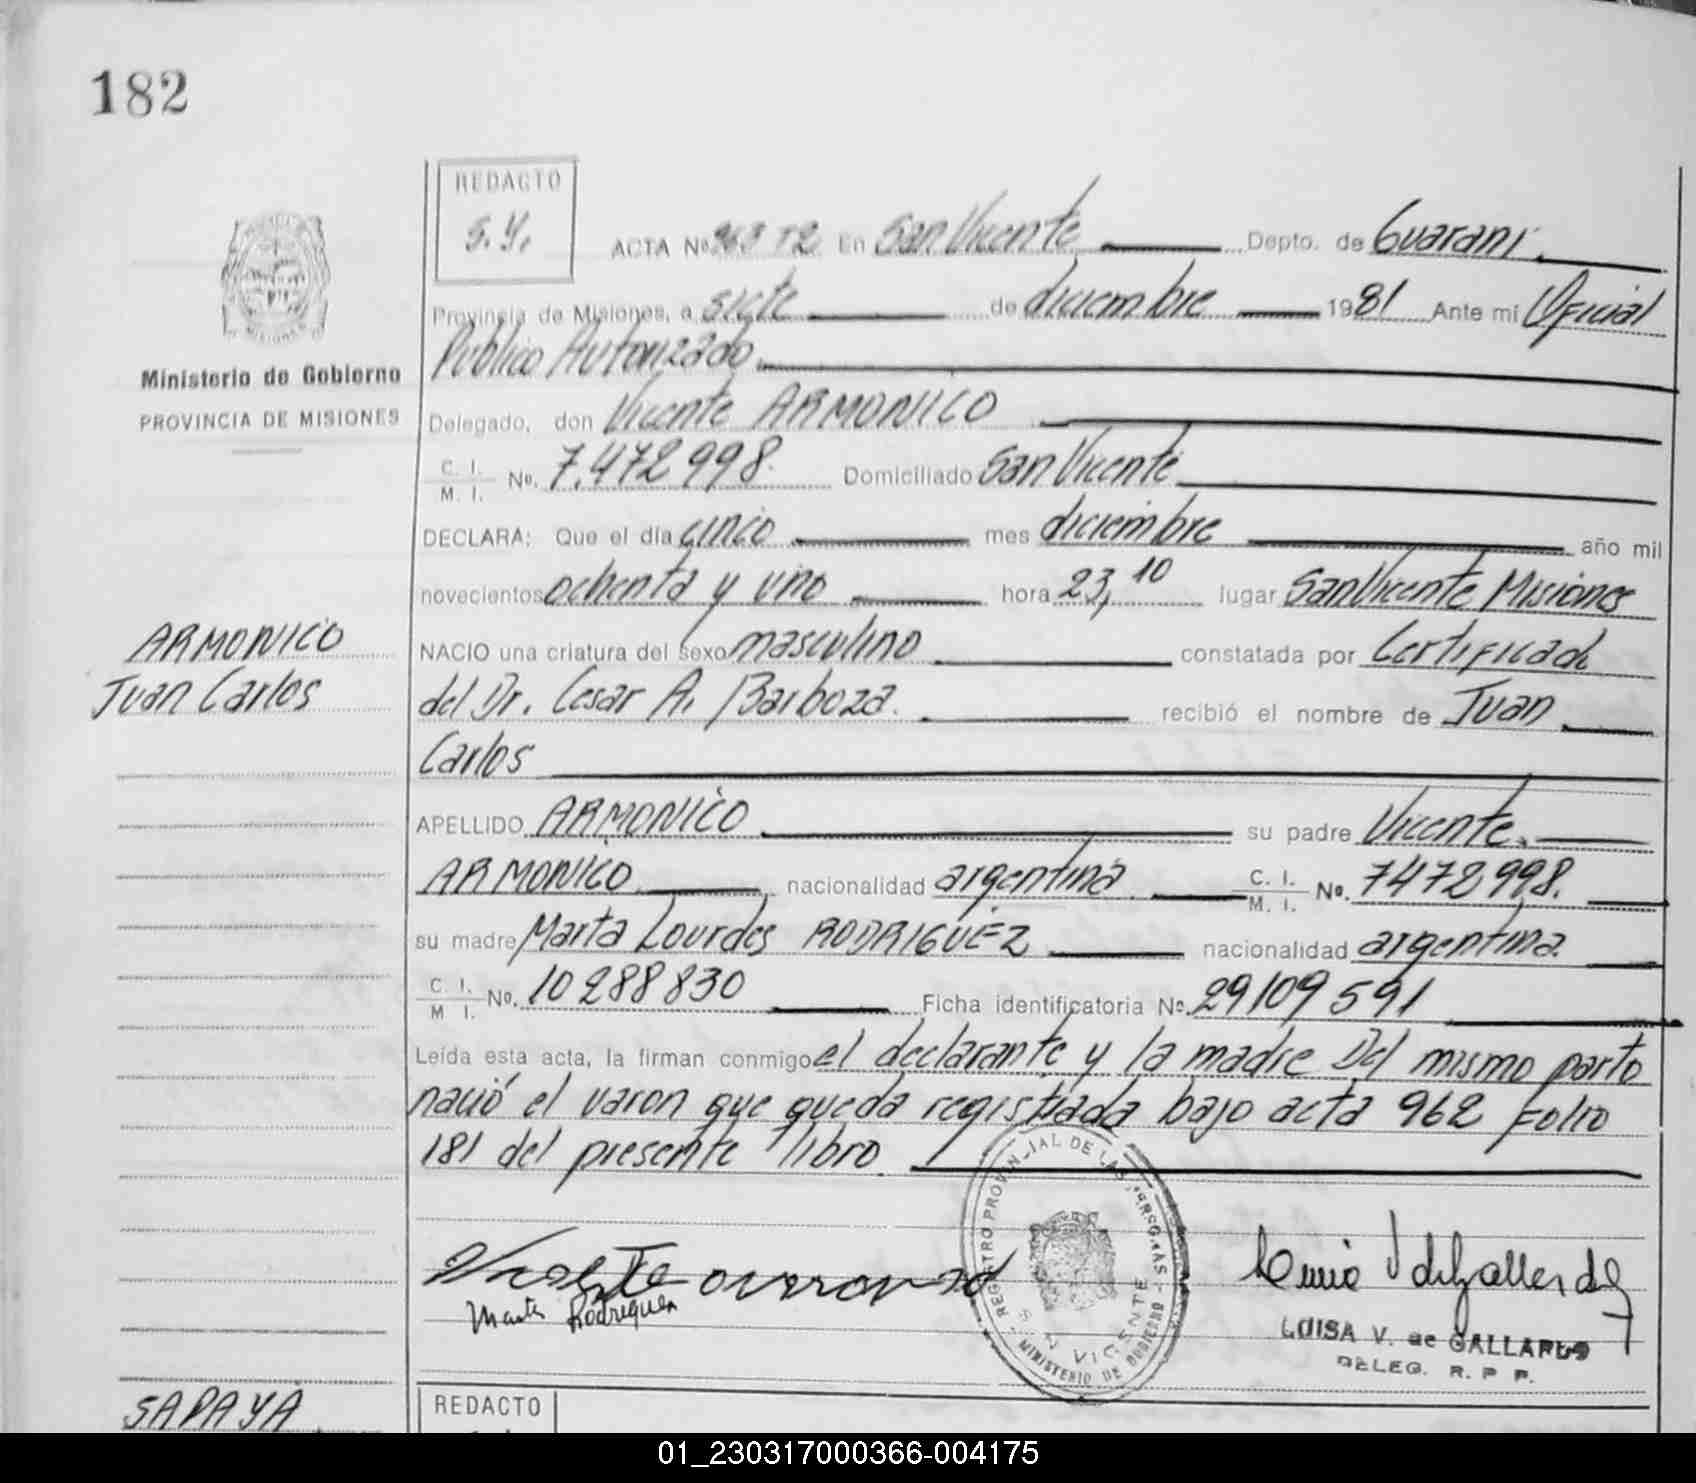 182
REDACTO
S.Y.
ACTA Nº 963 T2 En San Vicente Depto. de Guaraní
Provincia de Misiones, a siete de diciembre 1981 Ante mi Oficial
Publico Autorizado
Ministerio de Gobierno
PROVINCIA DE MISIONES
Delegado, don Vicente ARMONICO
C. I.
M. I. Nº. 7.472998. Domiciliado San Vicente
DECLARA: Que el día cinco mes diciembre año mil
novecientos ochenta y uno hora 23,10 lugar San Vicente Misiones
ARMONICO
Juan Carlos
NACIO una criatura del sexo masculino constatada por Certificado
del Dr. Cesar A. Barboza. recibió el nombre de Juan
Carlos
APELLIDO ARMONICO su padre Vicente
ARMONICO nacionalidad argentina C. I. M. I. Nº. 7472998.
su madre Marta Lourdes RODRIGUEZ nacionalidad argentina.
C. I. M I. Nº. 10288830 Ficha identificatoria Nº. 29109591
Leída esta acta, la firman conmigo el declarante y la madre Del mismo parto
nació el varon que queda registrada bajo acta 962 Folio
181 del presente libro
REGISTRO PROVINCIAL DE LAS PERSONAS
SAN VICENTE
MINISTERIO DE GOBIERNO
Marta Rodriguez
LUISA V. de GALLARDO
DELEG. R. P. P.
SAPAYA
REDACTO
01_230317000366-004175